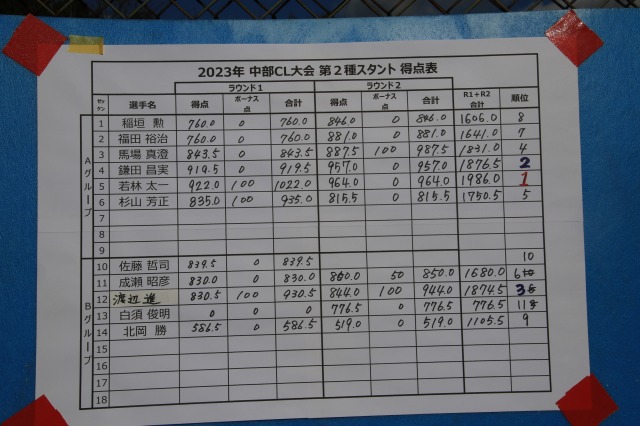 2023年 中部CL大会 第２種スタント 得点表
ゼッケン 選手名 ラウンド１ 得点 ボーナス点 合計 ラウンド２ 得点 ボーナス点 合計 R1+R2合計 順位
Aグループ
1 稲垣 勲 760.0 0 760.0 846.0 0 846.0 1606.0 8
2 福田 裕治 760.0 0 760.0 881.0 0 881.0 1641.0 7
3 馬場 真澄 843.5 0 843.5 887.5 100 987.5 1831.0 4
4 鎌田 昌実 919.5 0 919.5 957.0 0 957.0 1876.5 2
5 若林 太一 922.0 100 1022.0 964.0 0 964.0 1986.0 1
6 杉山 芳正 835.0 100 935.0 815.5 0 815.5 1750.5 5
7
8
9
Bグループ
10 佐藤 哲司 839.5 0 839.5 10
11 成瀬 昭彦 830.0 0 830.0 800.0 50 850.0 1680.0 6
12 渡辺 進 830.5 100 930.5 844.0 100 944.0 1874.5 3
13 白須 俊明 0 0 0 776.5 0 776.5 776.5 11
14 北岡 勝 586.5 0 586.5 519.0 0 519.0 1105.5 9
15
16
17
18